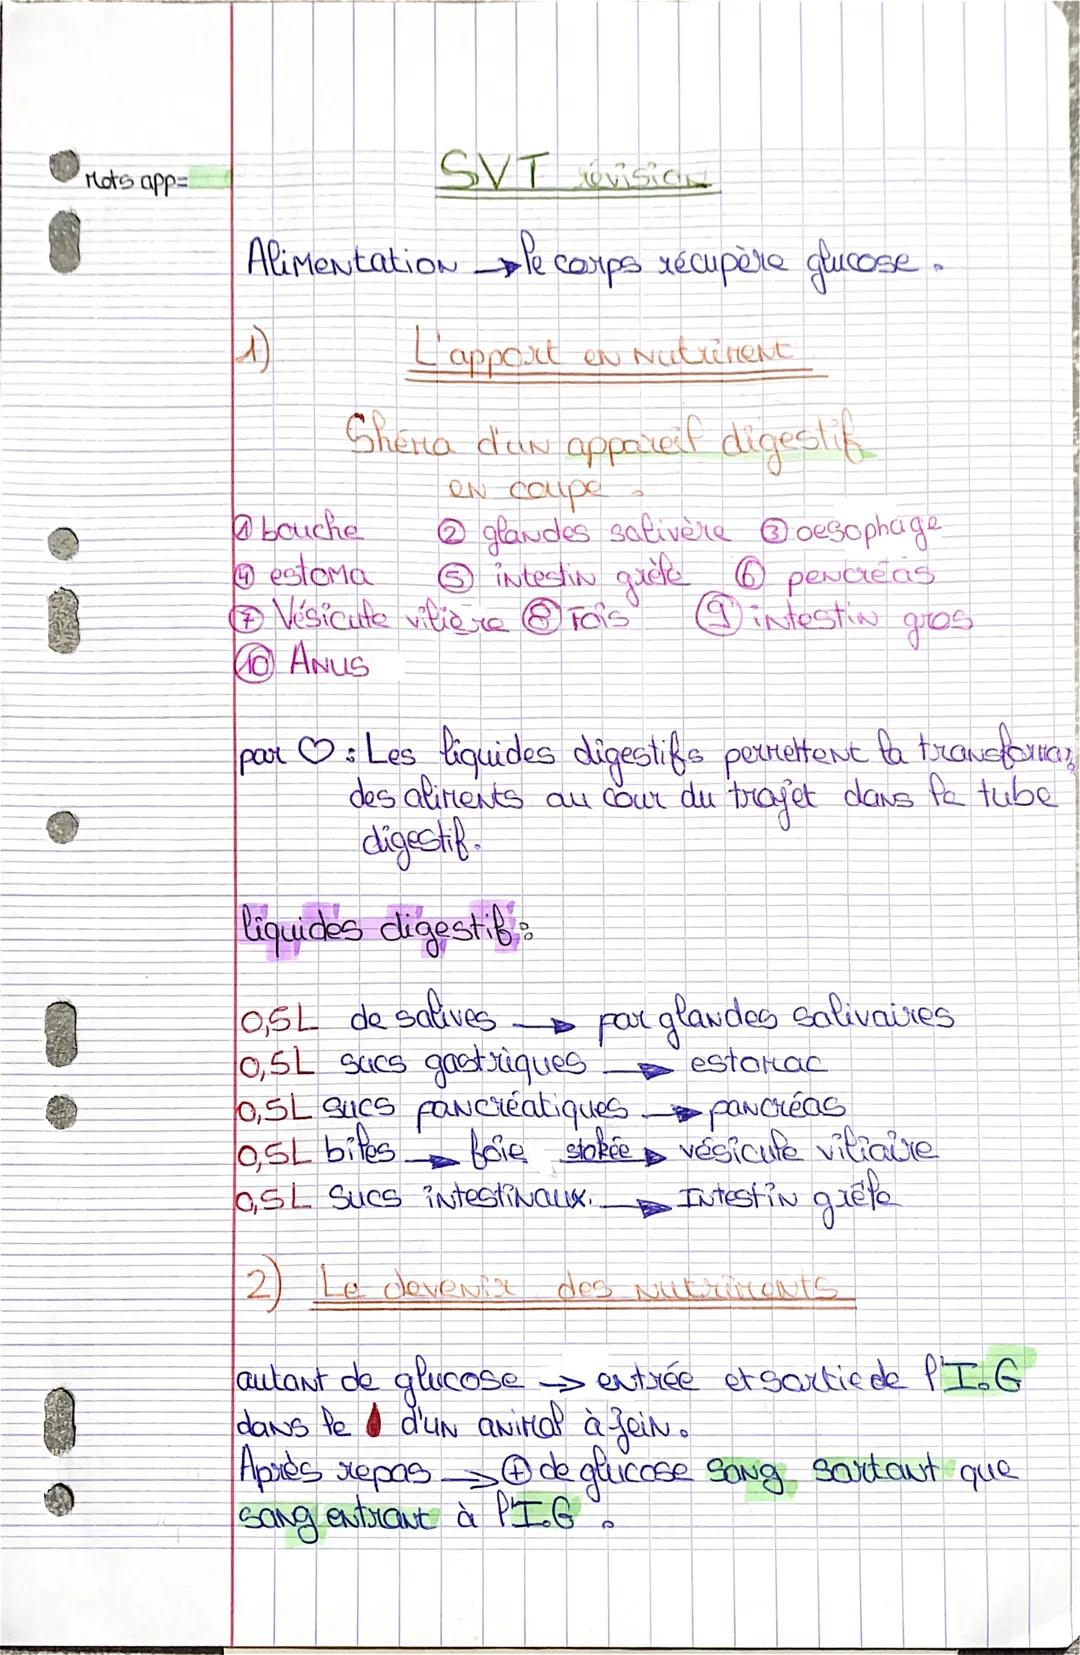 Mots app=
SVT révision
Alimentation → le corps récupère glucose.
1) L'apport en nutriment
Shéma d'un appareil digestif
en coupe.
① bouche ② glandes salivère ③ oesophage
④ estoma ⑤ intestin grêle ⑥ pencréas
⑦ Vésicule vilière ⑧ Fois ⑨ intestin gros
⑩ Anus
par ♡ : Les liquides digestifs permettent la
des aliments au cour du trajet dans le tube
digestif.
liquides digestif :
0,5L de salives → par glandes salivaires
0,5L sucs gastriques → estomac
0,5L sucs pancréatiques → pancréas
0,5L biles → foie stokée → vésicule viliaire
0,5L sucs intestinaux. → Intestin grêle
2) Le devenir des nutriments
autant de glucose → entrée et sortie de l'I.G
dans le d'un animal à jein.
Après repas → ⊕ de glucose sang sortant que
sang entrant à l'I.G.